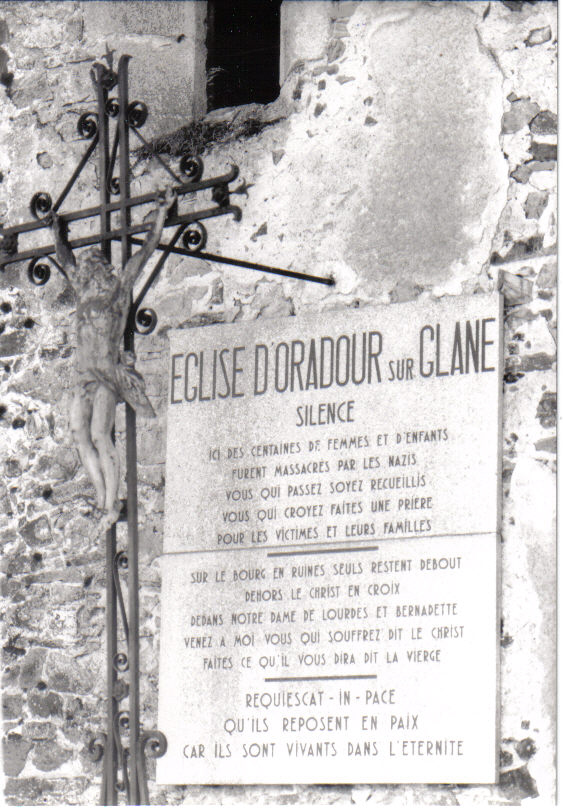 EGLISE D'ORADOUR SUR GLANE
SILENCE
ICI DES CENTAINES DE FEMMES ET D'ENFANTS
FURENT MASSACRÉS PAR LES NAZIS
VOUS QUI PASSEZ SOYEZ RECUEILLIS
VOUS QUI CROYEZ FAITES UNE PRIERE
POUR LES VICTIMES ET LEURS FAMILLES
SUR LE BOURG EN RUINES SEULS RESTENT DEBOUT
DEHORS LE CHRIST EN CROIX
DEDANS NOTRE DAME DE LOURDES ET BERNADETTE
VENEZ A MOI VOUS QUI SOUFFREZ DIT LE CHRIST
FAITES CE QU'IL VOUS DIRA DIT LA VIERGE
REQUIESCAT - IN - PACE
QU'ILS REPOSENT EN PAIX
CAR ILS SONT VIVANTS DANS L'ETERNITE